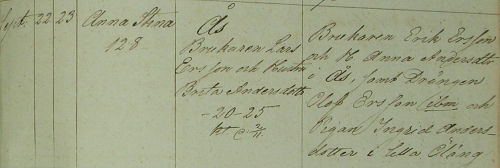 Sept. 22 23 Anna Stina
128
Ås
Brukaren Lars
Ersson och Hustru
Brita Andersdotter
-20-25
Brukaren Erik Ersson
och H. Anna Andersdtr
i Ås, samt Drängen
Olof Ersson ibm och
Pigan Ingrid Anders-
dotter i Lilla